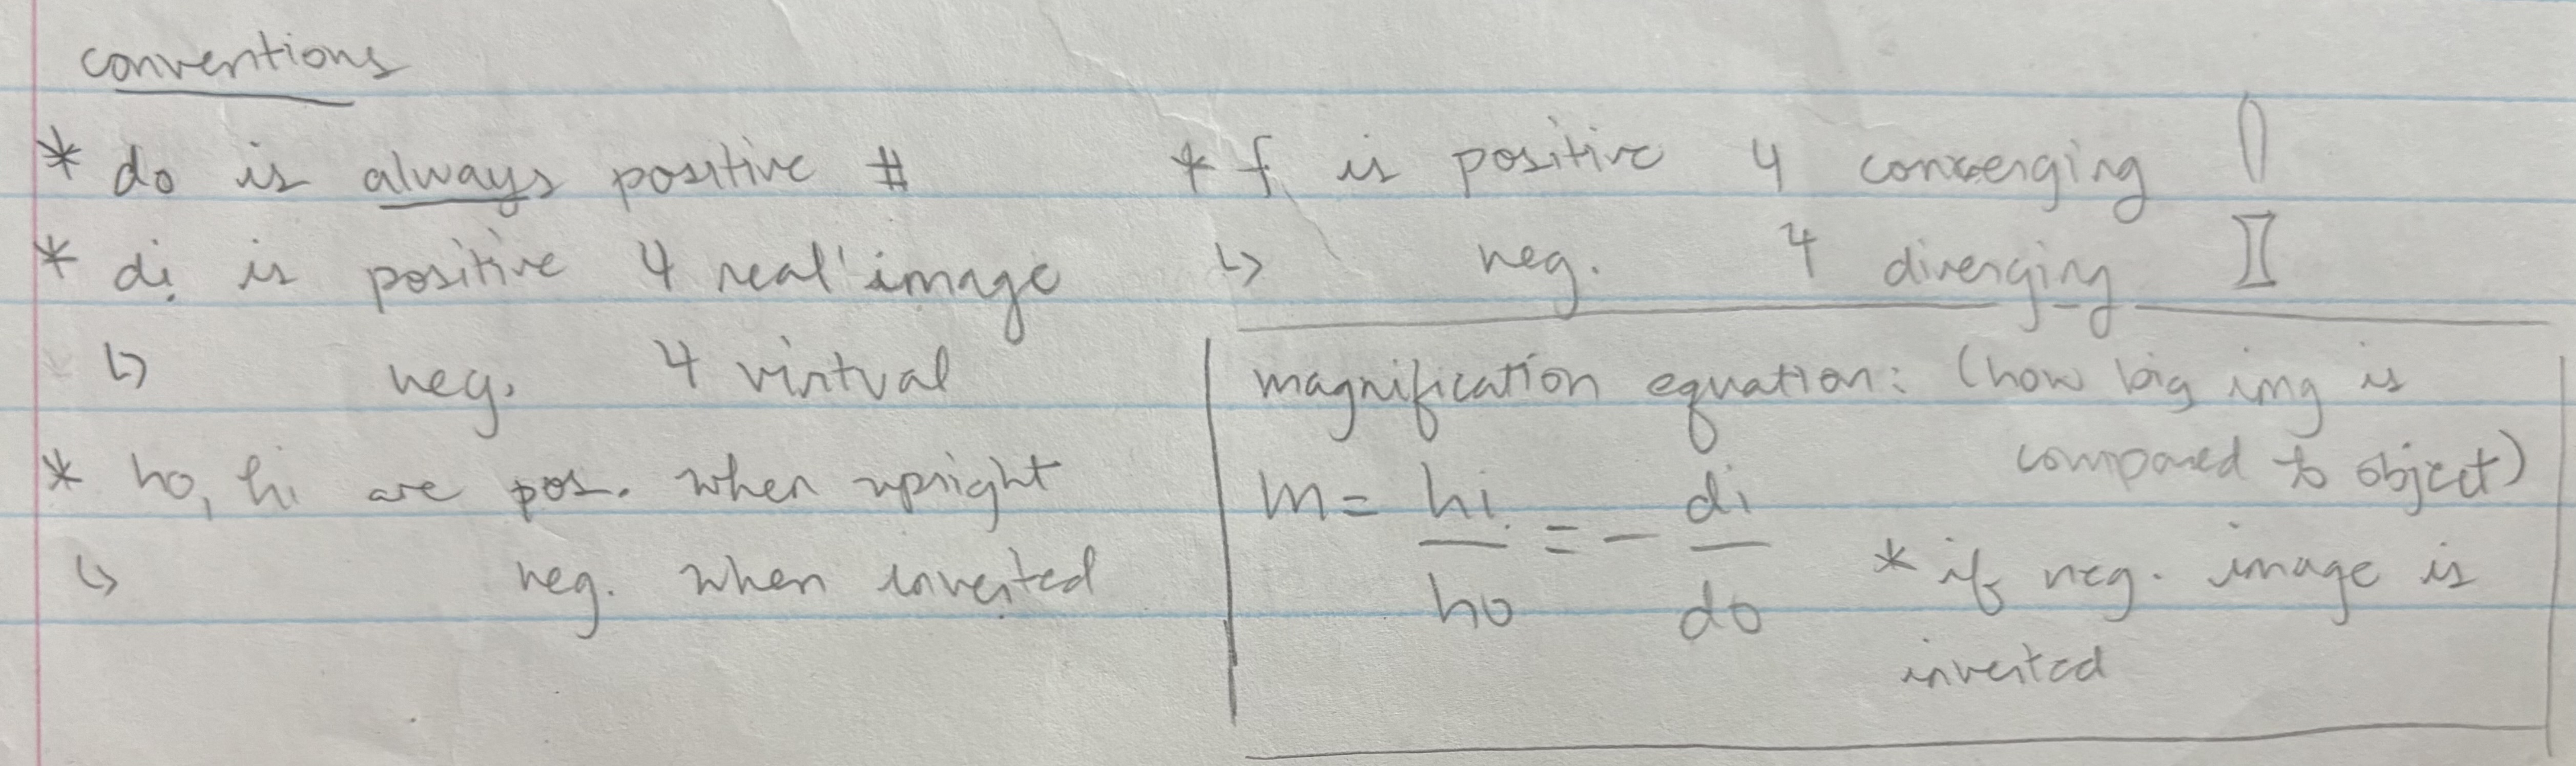 conventions
* do is always positive #
* di is positive 4 real image
↳ neg. 4 virtual
* ho, hi are pos. when upright
↳ neg. when inverted
* f is positive 4 converging
↳ neg. 4 diverging
magnification equation: (how big img is
compared to object)
m = hi/ho = - di/do
* if neg. image is
inverted